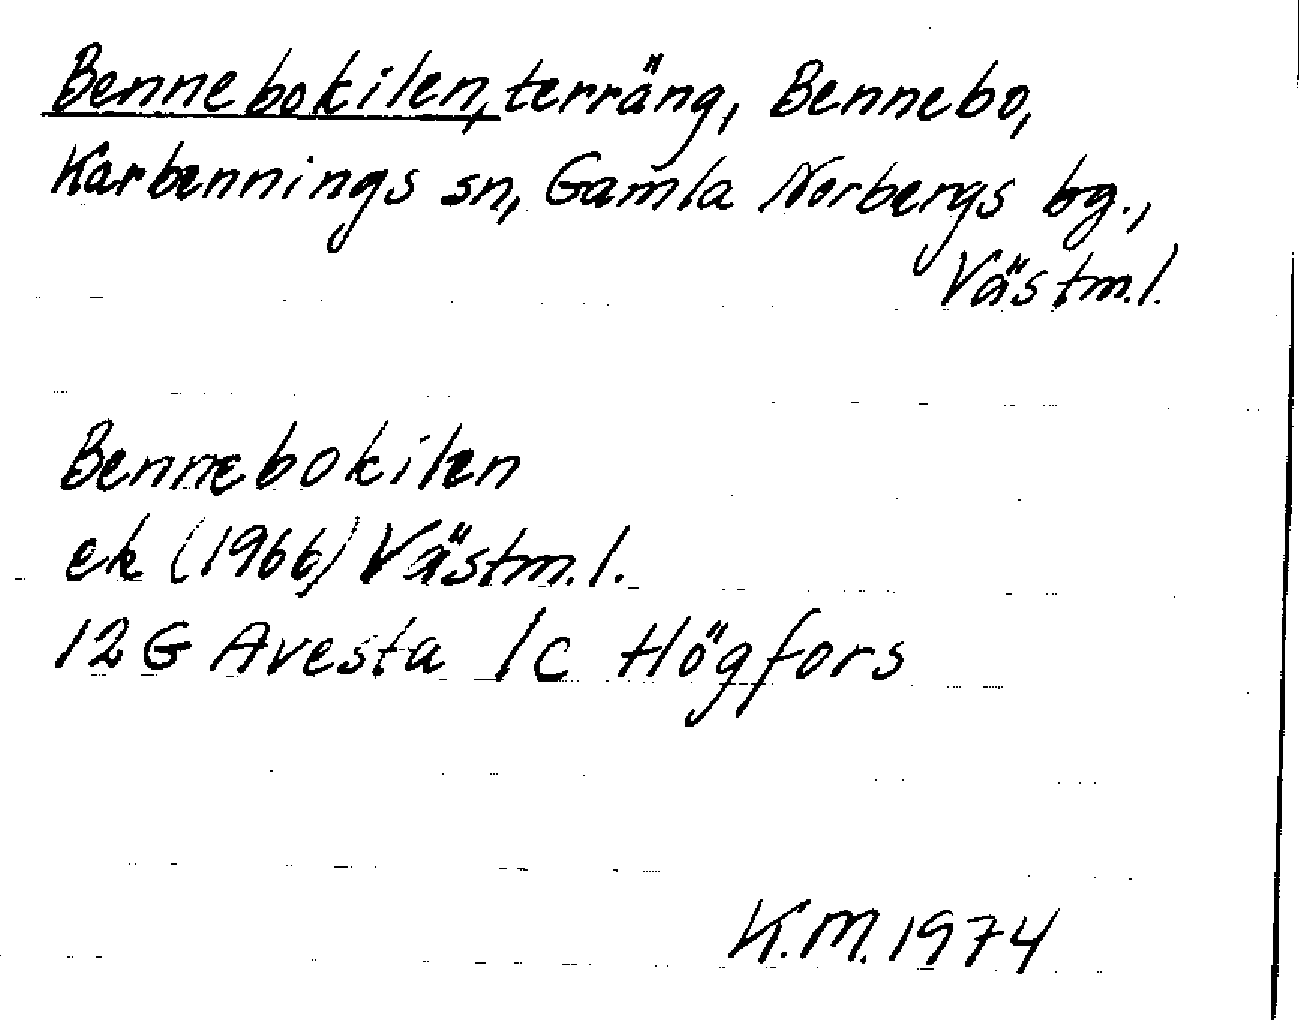 Bennebokilen, terräng, Bennebo,
Karbennings sn, Gamla Norbergs bg.,
Västm.l.
Bennebokilen
ek (1966) Västm.l.
12 G Avesta 1c Högfors
K.M. 1974